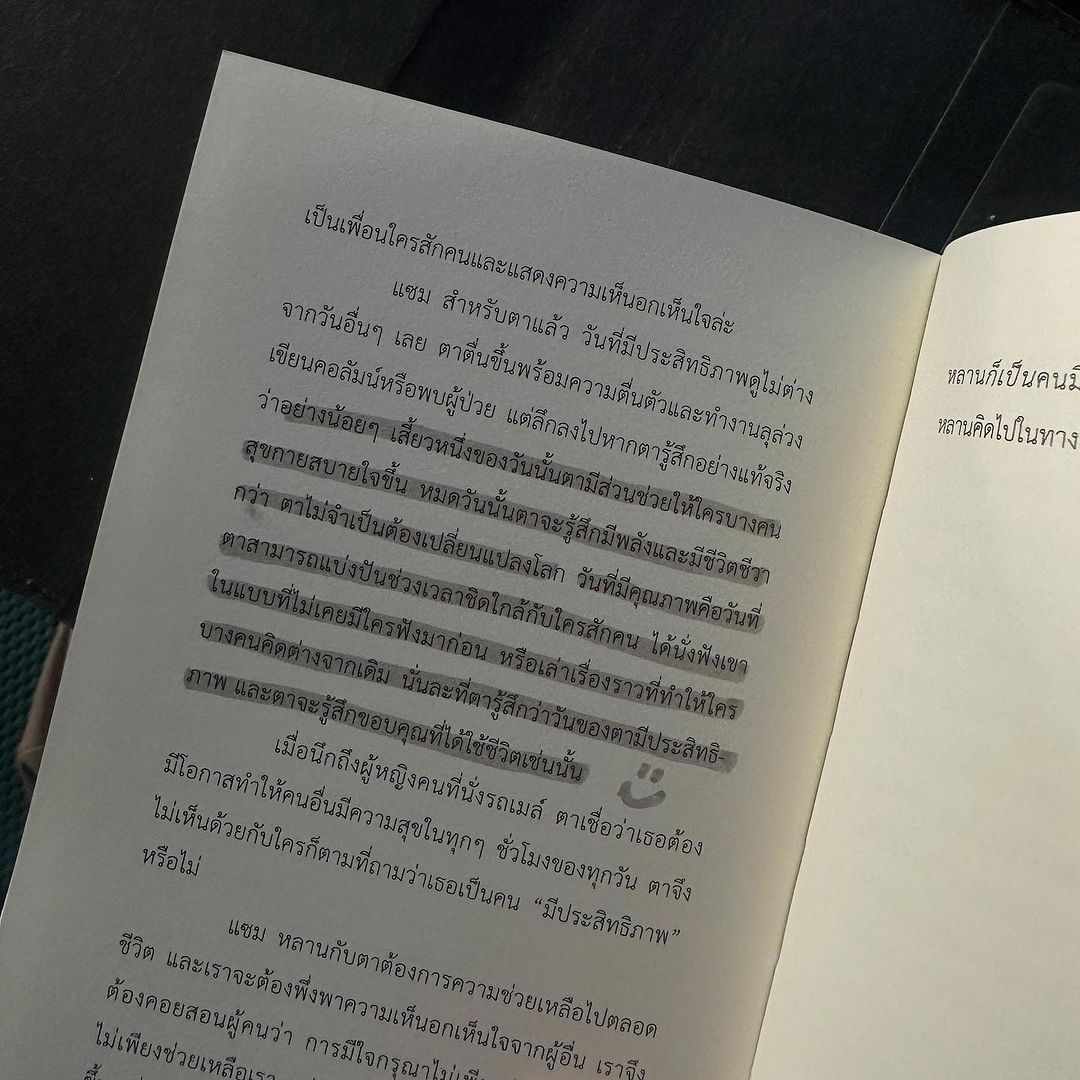 เป็นเพื่อนใครสักคนและแสดงความเห็นอกเห็นใจล่ะ
แซม สำหรับตาแล้ว วันที่มีประสิทธิภาพดูไม่ต่าง
จากวันอื่นๆ เลย ตาตื่นขึ้นพร้อมความตื่นตัวและทำงานลุล่วง
เขียนคอลัมน์หรือพบผู้ป่วย แต่ลึกลงไปหากตารู้สึกอย่างแท้จริง
ว่าอย่างน้อยๆ เสี้ยวหนึ่งของวันนั้นตามีส่วนช่วยให้ใครบางคน
สุขกายสบายใจขึ้น หมดวันนั้นตาจะรู้สึกมีพลังและมีชีวิตชีวา
กว่า ตาไม่จำเป็นต้องเปลี่ยนแปลงโลก วันที่มีคุณภาพคือวันที่
ตาสามารถแบ่งปันช่วงเวลาชิดใกล้กับใครสักคน ได้นั่งฟังเขา
ในแบบที่ไม่เคยมีใครฟังมาก่อน หรือเล่าเรื่องราวที่ทำให้ใคร
บางคนคิดต่างจากเดิม นั่นละที่ตารู้สึกว่าวันของตามีประสิทธิ-
ภาพ และตาจะรู้สึกขอบคุณที่ได้ใช้ชีวิตเช่นนั้น
เมื่อนึกถึงผู้หญิงคนที่นั่งรถเมล์ ตาเชื่อว่าเธอต้อง
มีโอกาสทำให้คนอื่นมีความสุขในทุกๆ ชั่วโมงของทุกวัน ตาจึง
ไม่เห็นด้วยกับใครก็ตามที่ถามว่าเธอเป็นคน “มีประสิทธิภาพ”
หรือไม่
แซม หลานกับตาต้องการความช่วยเหลือไปตลอด
ชีวิต และเราจะต้องพึ่งพาความเห็นอกเห็นใจจากผู้อื่น เราจึง
ต้องคอยสอนผู้คนว่า การมีใจกรุณาไม่เพี
ไม่เพียงช่วยเหลือเรา
หลานก็เป็นคนมี
หลานคิดไปในทาง